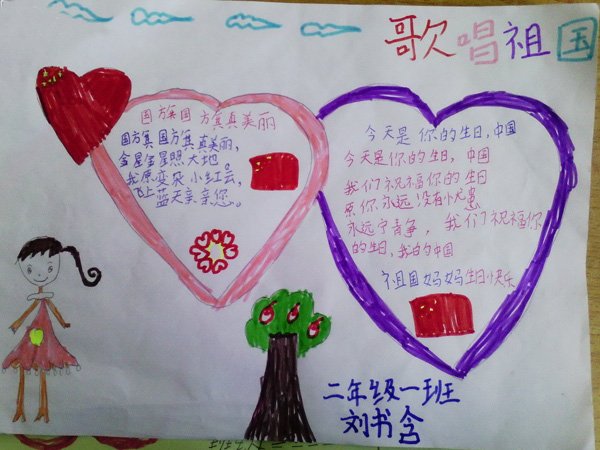 歌唱祖国
国旗国旗真美丽
国旗国旗真美丽,
金星金星照大地。
我原变朵小红云,
飞上蓝天亲亲您。
今天是你的生日,中国
今天是你的生日,中国
我们祝福你的生日
原你永远没有忧患
永远宁静,我们祝福你
的生日,我的中国
祖国妈妈生日快乐
二年级一班
刘书含